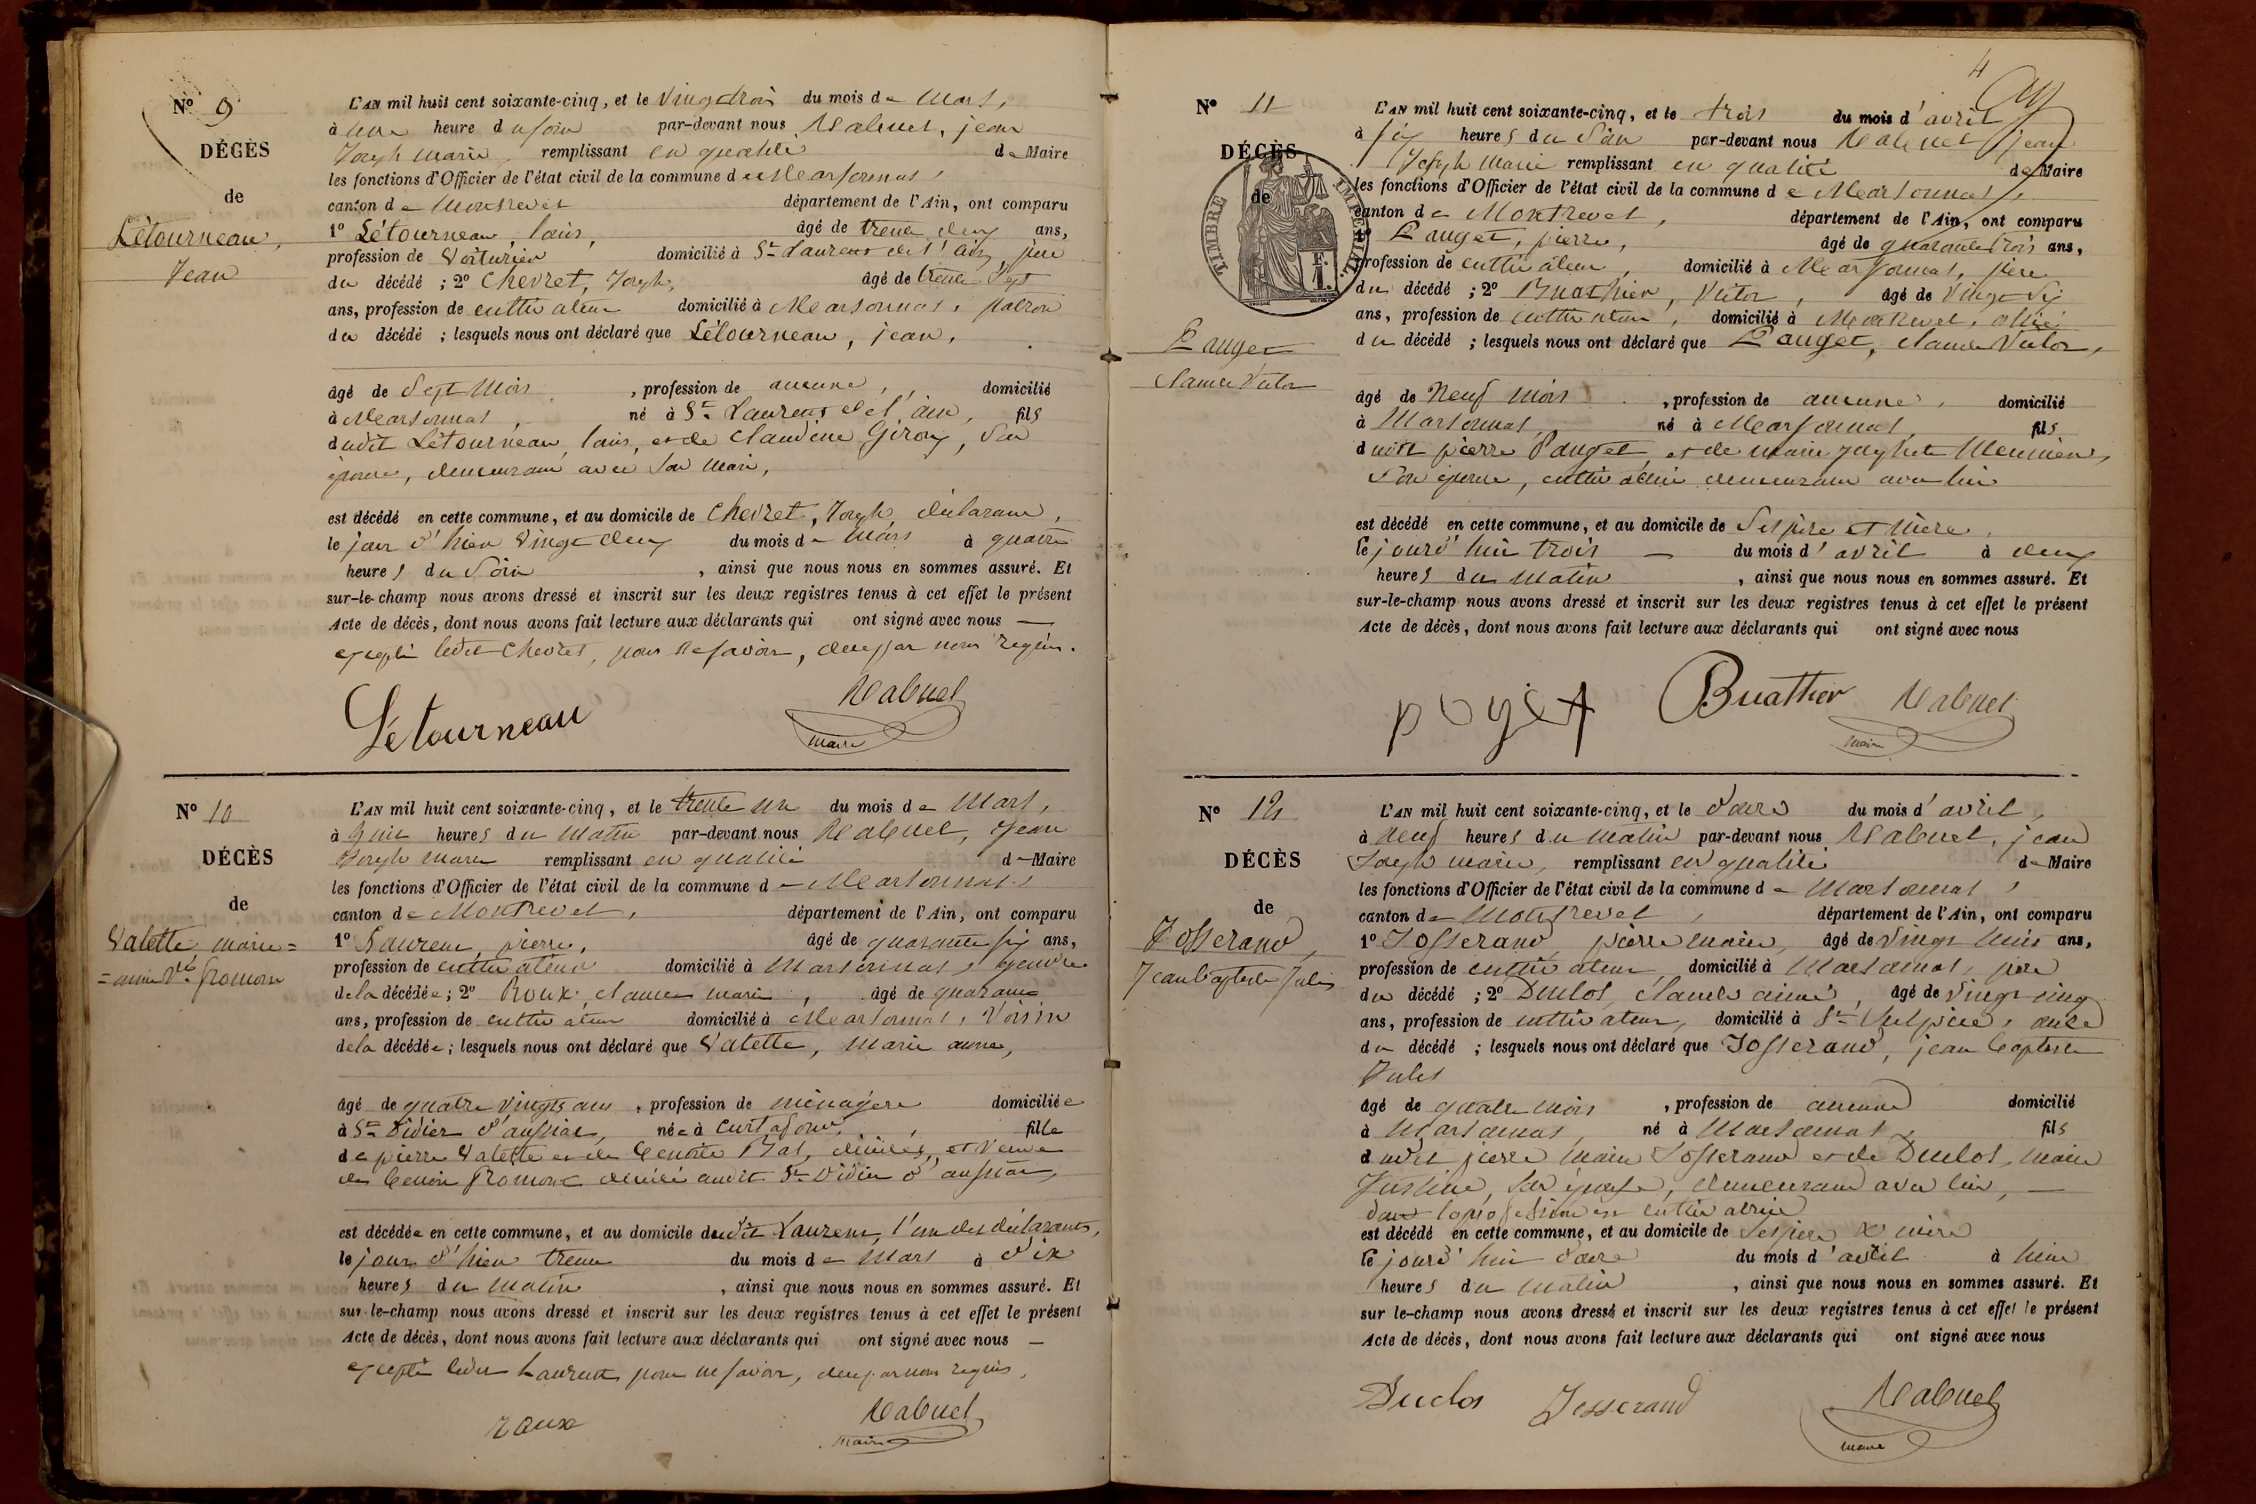 Nº 9
DÉCÈS
de
Létourneau,
Jean
L'AN mil huit cent soixante-cinq, et le vingt trois du mois de Mars,
à une heure du soir par-devant nous Rabuel, jean
Joseph marie, remplissant en qualité de Maire
les fonctions d'Officier de l'état civil de la commune de Marsonnas,
canton de Montrevel département de l'Ain, ont comparu
1º Létourneau, louis, âgé de trente deux ans,
profession de Voiturier domicilié à St Laurent de l'ain, père
du décédé ; 2º Chevret, Joseph, âgé de trente sept
ans, profession de cultivateur domicilié à Marsonnas, patron
du décédé ; lesquels nous ont déclaré que Létourneau, jean,
âgé de Sept Mois, profession de aucune, domicilié
à Marsonnas, né à St Laurent de l'ain, fils
dudit Létourneau, louis, et de Claudine Giroux, son
épouse, demeurant avec son mari,
est décédé en cette commune, et au domicile de Chevret, Joseph, déclarant,
le jour d'hier vingt deux du mois de Mars à quatre
heures du Soir, ainsi que nous nous en sommes assuré. Et
sur-le-champ nous avons dressé et inscrit sur les deux registres tenus à cet effet le présent
Acte de décès, dont nous avons fait lecture aux déclarants qui ont signé avec nous —
excepté ledit Chevret, pour ne savoir, de ce par nous requis.
Létourneau Rabuel
maire
Nº 10
DÉCÈS
de
Valette marie=
=anne Ve Fromont
L'AN mil huit cent soixante-cinq, et le trente un du mois de Mars,
à huit heures du Matin par-devant nous Rabuel, Jean
Joseph marie remplissant en qualité de Maire
les fonctions d'Officier de l'état civil de la commune de Marsonnas,
canton de Montrevel, département de l'Ain, ont comparu
1º Laurent, pierre, âgé de quarante six ans,
profession de cultivateur domicilié à Marsonnas, gendre
de la décédée; 2º Roux, claude marie, âgé de quarante
ans, profession de cultivateur domicilié à Marsonnas, Voisin
de la décédée; lesquels nous ont déclaré que Valette, Marie anne,
âgé de quatre vingts ans, profession de ménagère domiciliée
à St Didier d'aussiat, née à Curtafond, fille
de pierre Valette et de Benoite Bas, décédés, et Veuve
de Benoit Fromont décédé audit St Didier d'aussiat,
est décédée en cette commune, et au domicile dudit Laurent, l'un des déclarants,
le jour d'hier trente du mois de Mars à dix
heures du matin, ainsi que nous nous en sommes assuré. Et
sur le-champ nous avons dressé et inscrit sur les deux registres tenus à cet effet le présent
Acte de décès, dont nous avons fait lecture aux déclarants qui ont signé avec nous —
excepté ledit Laurent, pour ne savoir, de ce par nous requis.
roux Rabuel
maire
4
Nº 11
DÉCÈS
de
TIMBRE IMPÉRIAL
Pauget
claude Victor
L'AN mil huit cent soixante-cinq, et le trois du mois d'avril
à six heures du Soir par-devant nous Rabuel jean
Joseph Marie remplissant en qualité de Maire
les fonctions d'Officier de l'état civil de la commune de Marsonnas,
canton de Montrevel, département de l'Ain, ont comparu
1º Pauget, pierre, âgé de quarante trois ans,
profession de cultivateur, domicilié à Marsonnas, père
du décédé ; 2º Buathier, Victor, âgé de Vingt Six
ans, profession de cultivateur, domicilié à Montrevel, allié
du décédé ; lesquels nous ont déclaré que Pauget, claude Victor,
âgé de Neuf Mois, profession de aucune, domicilié
à Marsonnas, né à Marsonnas, fils
dudit pierre Pauget, et de marie josephete Meunier,
Son épouse, cultivatrice demeurant avec lui
est décédé en cette commune, et au domicile de Ses père et Mère,
le jourd'hui trois — du mois d'avril à deux
heures du Matin, ainsi que nous nous en sommes assuré. Et
sur-le-champ nous avons dressé et inscrit sur les deux registres tenus à cet effet le présent
Acte de décès, dont nous avons fait lecture aux déclarants qui ont signé avec nous
poget Buathier Rabuel
maire
Nº 12
DÉCÈS
de
Josserand,
Jean baptiste Jules
L'AN mil huit cent soixante-cinq, et le douze du mois d'avril,
à neuf heures du Matin par-devant nous Rabuel, jean
Joseph marie, remplissant en qualité de Maire
les fonctions d'Officier de l'état civil de la commune de Marsonnas,
canton de Montrevel, département de l'Ain, ont comparu
1º Josserand, pierre marie, âgé de vingt huit ans,
profession de cultivateur domicilié à Marsonnas, père
du décédé ; 2º Duclos, claude aimé, âgé de vingt cinq
ans, profession de cultivateur, domicilié à St Sulpice, oncle
du décédé ; lesquels nous ont déclaré que Josserand, jean baptiste
Jules
âgé de quatre mois, profession de aucune domicilié
à Marsonnas, né à Marsonnas, fils
dudit pierre marie Josserand et de Duclos, marie
Justine, son épouse, demeurant avec lui, —
dont la profession est cultivatrice
est décédé en cette commune, et au domicile de Ses père & mère
le jourd'hui douze du mois d'avril à une
heures du matin, ainsi que nous nous en sommes assuré. Et
sur le-champ nous avons dressé et inscrit sur les deux registres tenus à cet effet le présent
Acte de décès, dont nous avons fait lecture aux déclarants qui ont signé avec nous
Duclos Josserand Rabuel
maire